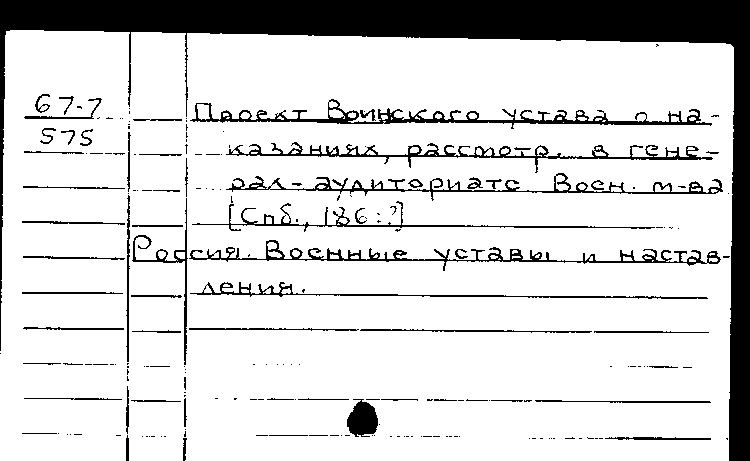 67-7
575
Проект Воинского устава о на-
казаниях, рассмотр. в гене-
рал-аудиториате Воен. м-ва
[Спб., 186:?]
Россия. Военные уставы и настав-
ления.